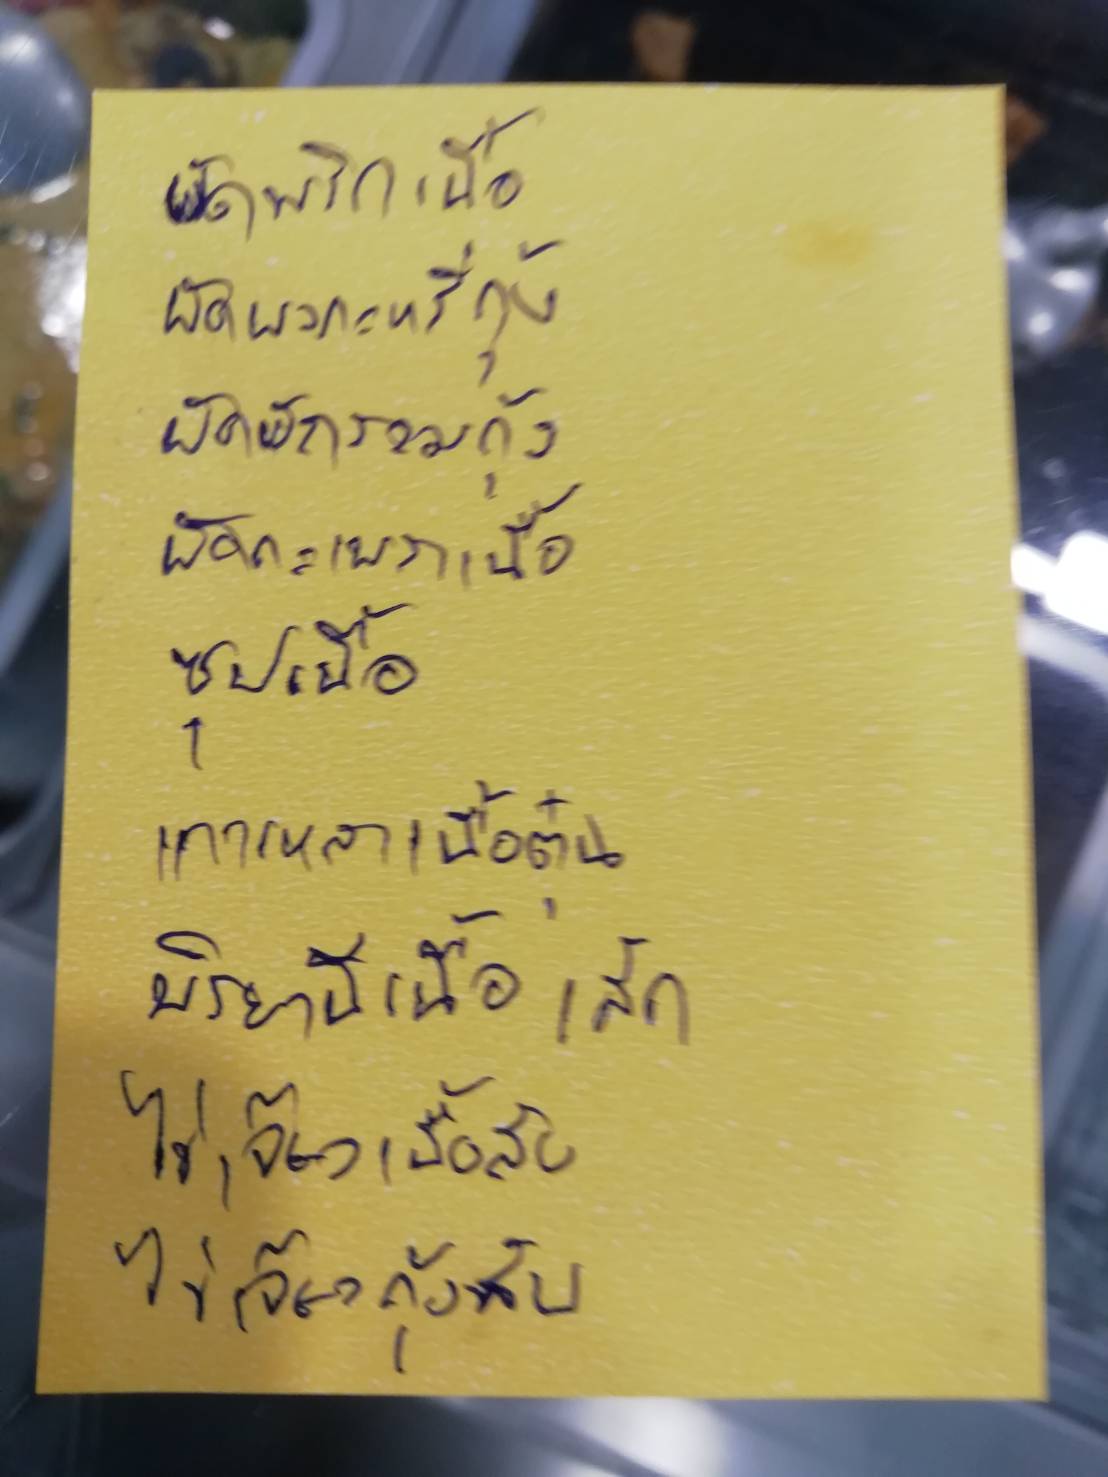 ผัดพริกเนื้อ
ผัดผงกะหรี่กุ้ง
ผัดผักรวมกุ้ง
ผัดกะเพราเนื้อ
ซุปเนื้อ
เกาเหลาเนื้อตุ๋น
บิรยานีเนื้อ เล็ก
ไข่เจียวเนื้อสับ
ไข่เจียวกุ้งสับ